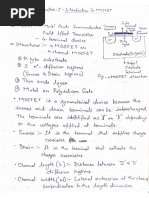 - Introduction to MOSFET
Metal Oxide Semiconductor
Field Effect Transistor
4 terminal device
Structure :- n MOSFET or
n channel MOSFET
① P-type substrate
② n-type diffusion regions
(Source & Drain regions)
③ Oxide (Dielectric)
④ Metal or Polysilicon Gate
MOSFET is a symmetrical device because the
source and drain terminals can be interchanged.
The terminals are identified as S or D, depending on
the voltages applied at terminals.
Source :- It is the terminal that supplies charge
carriers
Drain :- It is the terminal that collects charge
carriers.
Channel Length (L) :- Distance between 'S' & 'D'
diffusion regions.
Channel width (W) :- Lateral extensions of the channel
perpendicular to the length dimension.